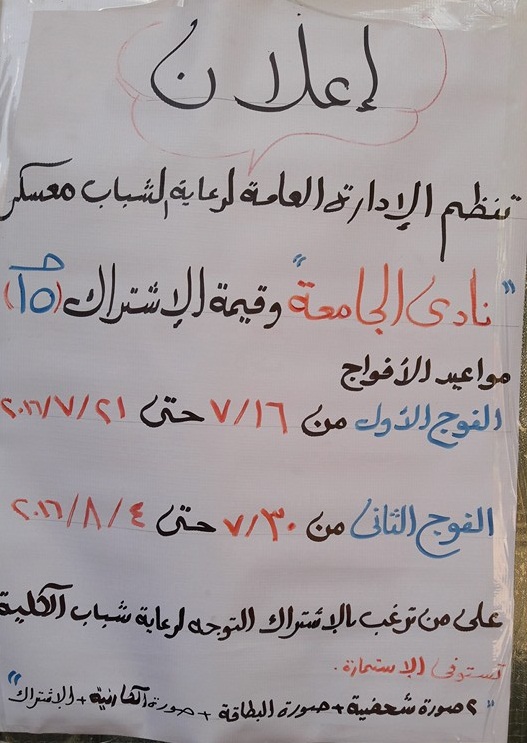 إعلان
تنظم الإدارة العامة لرعاية الشباب معسكر
"نادى الجامعة" وقيمة الإشتراك (١٥ جـ)
مواعيد الأفواج
الفوج الأول من ٧/١٦ حتى ٢٠١٦/٧/٢١
الفوج الثانى من ٧/٣٠ حتى ٢٠١٦/٨/٤
على من ترغب بالإشتراك التوجه لرعاية شباب الكلية
تستوفى الإستمارة.
"٢ صورة شخصية + صورة البطاقة + صورة الكارنية + الإشتراك"